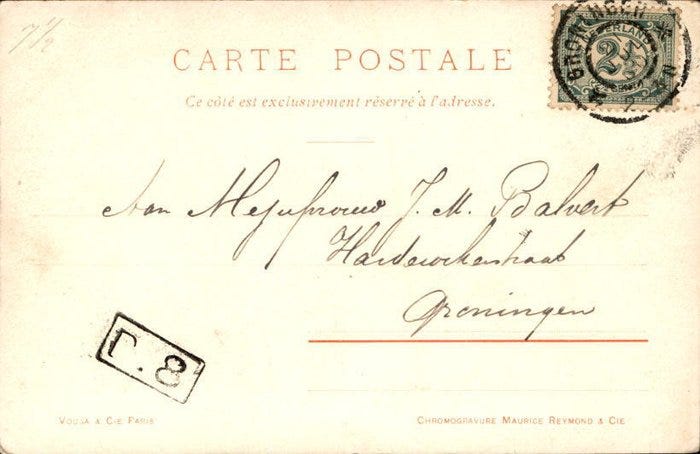 7½
CARTE POSTALE
Ce côté est exclusivement réservé à l'adresse.
GRONINGEN
NEDERLAND
2½
CENT
Aan Mejufrouw J. M. Balvert
Harderwickerstraat
Groningen
8
VOUGA & CIE PARIS
CHROMOGRAVURE MAURICE REYMOND & CIE